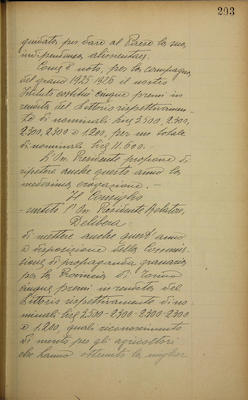 293
guidato, per dare al Paese la sua
indipendenza alimentare.
Come è noto, per la campagna
del grano 1925-1926 il nostro
Istituto costituì cinque premi in
rendita del Littorio rispettivamen-
te di nominali Lire 2500, 2300,
2300, 2300 e 1200, per un totale
di nominali Lire 11.600. -
L'On. Presidente propone di
ripetere anche questo anno la
medesima erogazione. -
Il Consiglio
- sentito l'On. Presidente Relatore,
Delibera:
di mettere anche quest'anno
a disposizione della Commis-
sione di propaganda granaria
per la Provincia di
cinque premi in rendita del
Littorio rispettivamente di no-
minali Lire 2500 - 2300 - 2300 - 2300
e 1200 quale riconoscimento
di merito per gli agricoltori
che hanno ottenuto la miglior